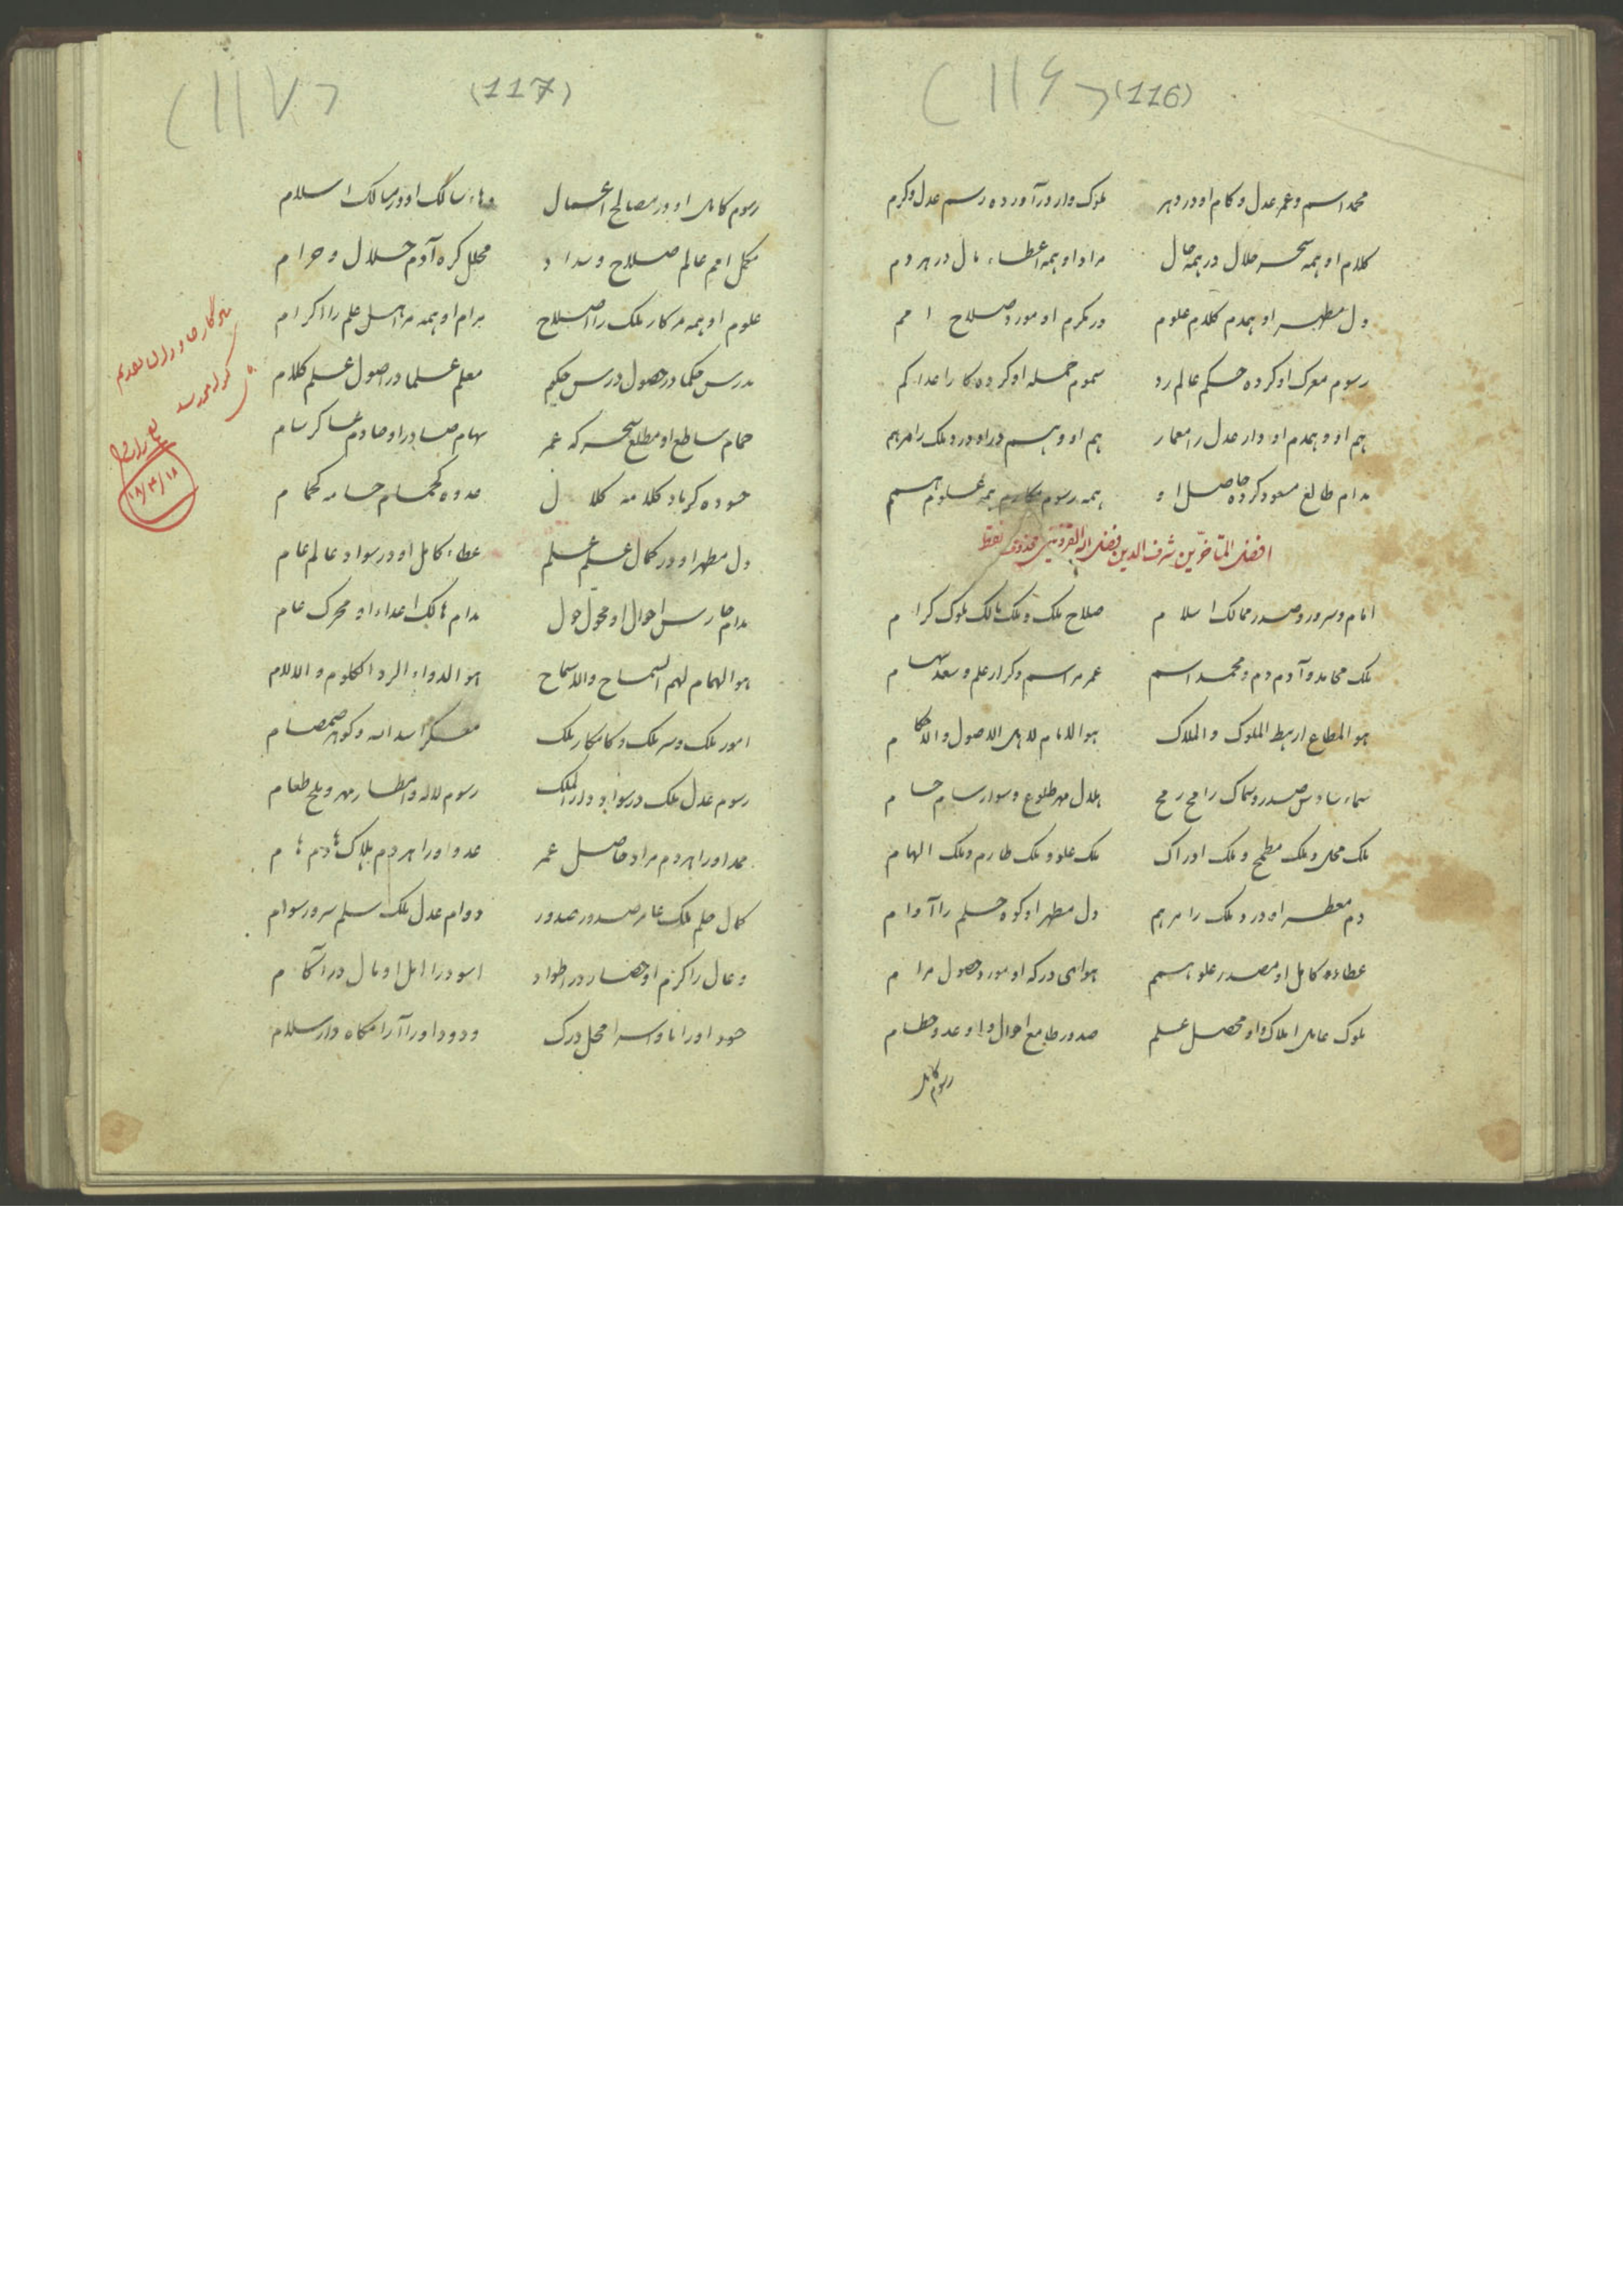 (۱۱۶) (116)
محمد اسم و عمر عدل و کام او در دهر ملوک وار در آورده رسم عدل و کرم
کلام او همه سحر حلال در همه حال مراد او همه اعطاء مال در هر دم
دل مطهر او همدم کلام علوم در مکرم او مورد صلاح امم
رسوم معرک او کرده حکم عالم رد سموم حمله او کرده کار اعدا کم
هم او و همدم او دار عدل را معمار هم او و هم در او درد ملک را مرهم
مدام طالع مسعود کرده حاصل او همه رسوم مکارم همه علوم همم
افضل المتأخرین شرف الدین فضل الله القزوینی محذوف نقط
امام و سرور و صدر ممالک اسلام صلاح ملک و ملک مالک ملوک کرام
ملک محامد و آدم دم و محمد اسم عمر مراسم و کرار علم و سعد سهام
هو المطاع لرهط الملوک و الملاک هو الامام لاهل الاصول و الاحکام
سماء صدر و سماک رامح رمح هلال مهر طلوع و سوار سام حسام
ملک محل و ملک مطمح و ملک ادراک ملک علو و ملک طارم و ملک الهام
دم معطر او درد ملک را مرهم دل مطهر او کوه حلم را آرام
عطاء کامل او مصدر علو همم هوای درگه او مورد حصول مرام
ملوک عامل املاک و او محصل علم صدور طامع احوال و او عدو حطام
رسوم کامل
(۱۱۷) (117)
رسوم کامل او در مصالح اعمال دهاء سالک او در مسالک اسلام
مکمل امم عالم صلاح و سداد محلل گره آدم حلال و حرام
علوم او همه مر کار ملک را اصلاح مرام او همه مر اهل علم را اکرام
مدرس حکما در حصول درس حکم معلم علما در اصول علم کلام
حسام ساطع او مطلع سحر که عمر سهام صادر او صادم عساکر سام
دل مطهر او در کمال علم علم عطاء کامل او در سواد عالم عام
مدام حارس احوال او محول حول مدام هالک اعداء او محرک عام
هو الهمام لهم السماح و الاسماح هو الدواء لرد الکلوم و الالام
امور ملک و سر ملک و کامکار ملک معسکر اسد الله و کوه صمصام
رسوم عدل ملک در سواد دار الملک رسوم لاله و امطار مهر و ملح طعام
ممد او را هر دم مراد حاصل عمر عدو او را هر دم هلاک هادم هام
کمال حلم ملک عامر صدور صدور دوام عدل ملک سلم سرور سوام
وعال را کرم او حصار در اطواد اسود را اهل او مال در آکام
حسود او را ماوا سرا محل درک ودود او را آرامگاه دار سلام
۱۸/۳/۱۸